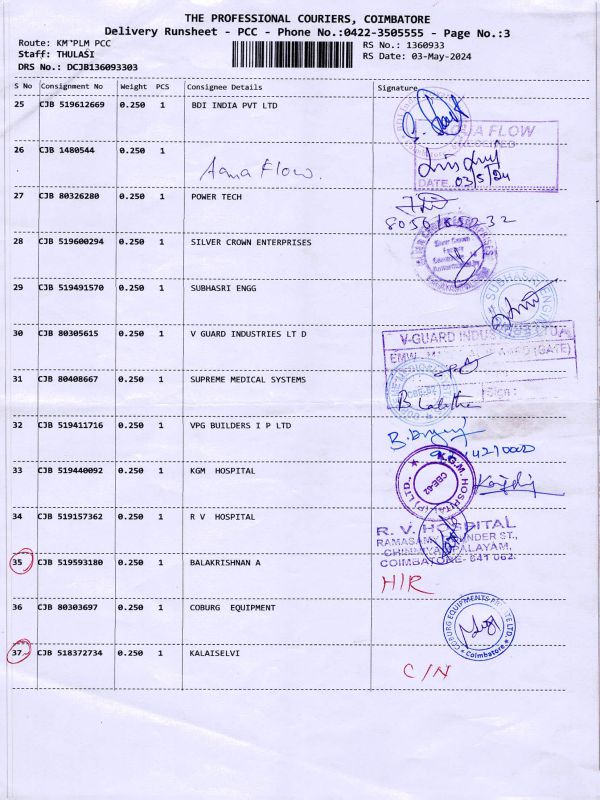 THE PROFESSIONAL COURIERS, COIMBATORE
Delivery Runsheet - PCC - Phone No.:0422-3505555 - Page No.:3
Route: KM"PLM PCC
Staff: THULASI
DRS No.: DCJB136093303
RS No.: 1360933
RS Date: 03-May-2024
S No Consignment No Weight PCS Consignee Details Signature
25 CJB 519612669 0.250 1 BDI INDIA PVT LTD
26 CJB 1480544 0.250 1 Aqua Flow.
AQUA FLOW
DATE 03/5/24
27 CJB 80326280 0.250 1 POWER TECH
28 CJB 519600294 0.250 1 SILVER CROWN ENTERPRISES
Silver Crown
29 CJB 519491570 0.250 1 SUBHASRI ENGG
SUBHASRI
30 CJB 80305615 0.250 1 V GUARD INDUSTRIES LT D
V-GUARD
(GATE)
Sign:
31 CJB 80408667 0.250 1 SUPREME MEDICAL SYSTEMS
32 CJB 519411716 0.250 1 VPG BUILDERS I P LTD
33 CJB 519440092 0.250 1 KGM HOSPITAL
K.G.M HOSPITAL (P) LTD.,
CBE-02
34 CJB 519157362 0.250 1 R V HOSPITAL
R. V. HOSPITAL
COIMBATORE- 641 062.
35 CJB 519593180 0.250 1 BALAKRISHNAN A
H/R
36 CJB 80303697 0.250 1 COBURG EQUIPMENT
COBURG EQUIPMENTS
Coimbatore
37 CJB 518372734 0.250 1 KALAISELVI
C/N